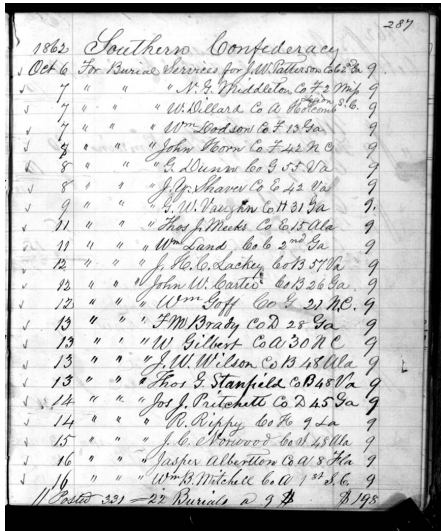 287
1862 Southern Confederacy
Oct 6 For Burial Services for J. W. Patterson Co C 2 Ga 9
" 7 " " " N. G. Middleton Co F. 2 Miss 9
" 7 " " " W. Dillard Co A Holcomb Legion S. C. 9
" 7 " " " Wm Dodson Co F. 13 Ga 9
" 8 " " " John Horn Co F 42 N C 9
" 8 " " " G. Dunn Co G 55 Va 9
" 8 " " " J. Y. Shaver Co E 42 Va 9
" 9 " " " G. W. Vaughn Co H 31 Ga 9.
" 11 " " " Thos J. Meeks Co E 15 Ala 9
" 11 " " " Wm Land Co C 2nd Ga 9
" 12 " " " J. H. C. Lackey Co B 57 Va 9
" 12 " " " John W. Carter Co B 26 Ga. 9
" 12 " " " Wm Goff Co G 21 N.C. 9
" 13 " " " F M Brady Co D 28 Ga 9
" 13 " " " W Gilbert Co A 30 N C 9
" 13 " " " J. W. Wilson Co B 48 Ala 9
" 13 " " " Thos G. Stanfield Co B 48 Va 9
" 14 " " " Jos J. Pritchett Co D 45 Ga 9
" 14 " " " R. Rippy Co K 9 La 9
" 15 " " " J. C. Norwood Co I 48 Ala 9
" 16 " " " Jasper Albertton Co A 8 Fla 9
" 16 " " " Wm B. Mitchell Co A 1st S. C. 9
11 Posted 331 — 22 Burials a 9 $ $198